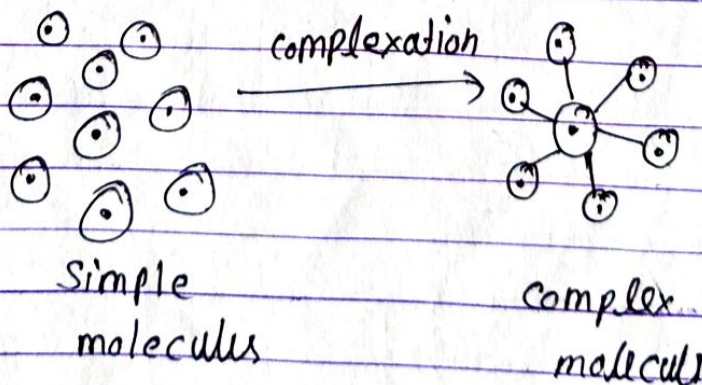 complexation
Simple
moleculus
complex
molecul